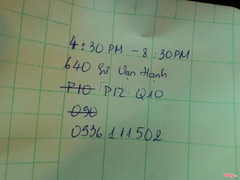 4:30PM - 8:30PM
640 Sư Vạn Hạnh
P10 P12 Q10
090
0936 111502